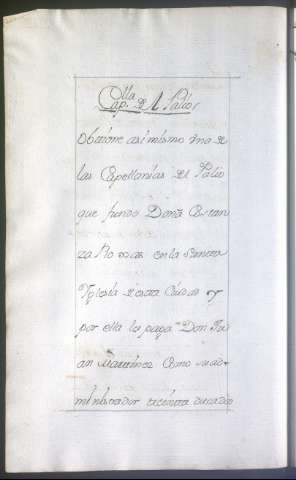 Cap.lla de el Palio
Obtiene asi mismo una de
las Capellanias del Palio
que fundo Doña Costan
za en la Santa
Yglesia desta Ciudad y
por ella le paga Don Ju
an Martinez como su ad
ministrador treinta ducados